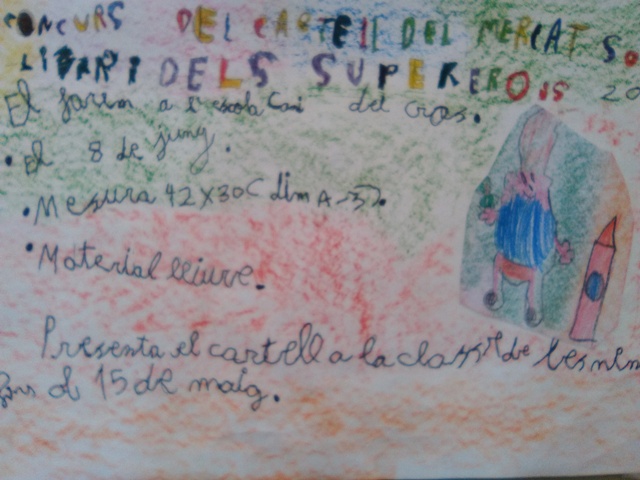 CONCURS DEL CARTELL DEL MERCAT SO
LIDARI DELS SUPEREROIS 20
El farem a l'escola Can del cros.
• El 8 de juny.
• Mesura 42x30 (dim A-3).
• Material lliure.
Presenta el cartell a la classe de les nin
fins el 15 de maig.